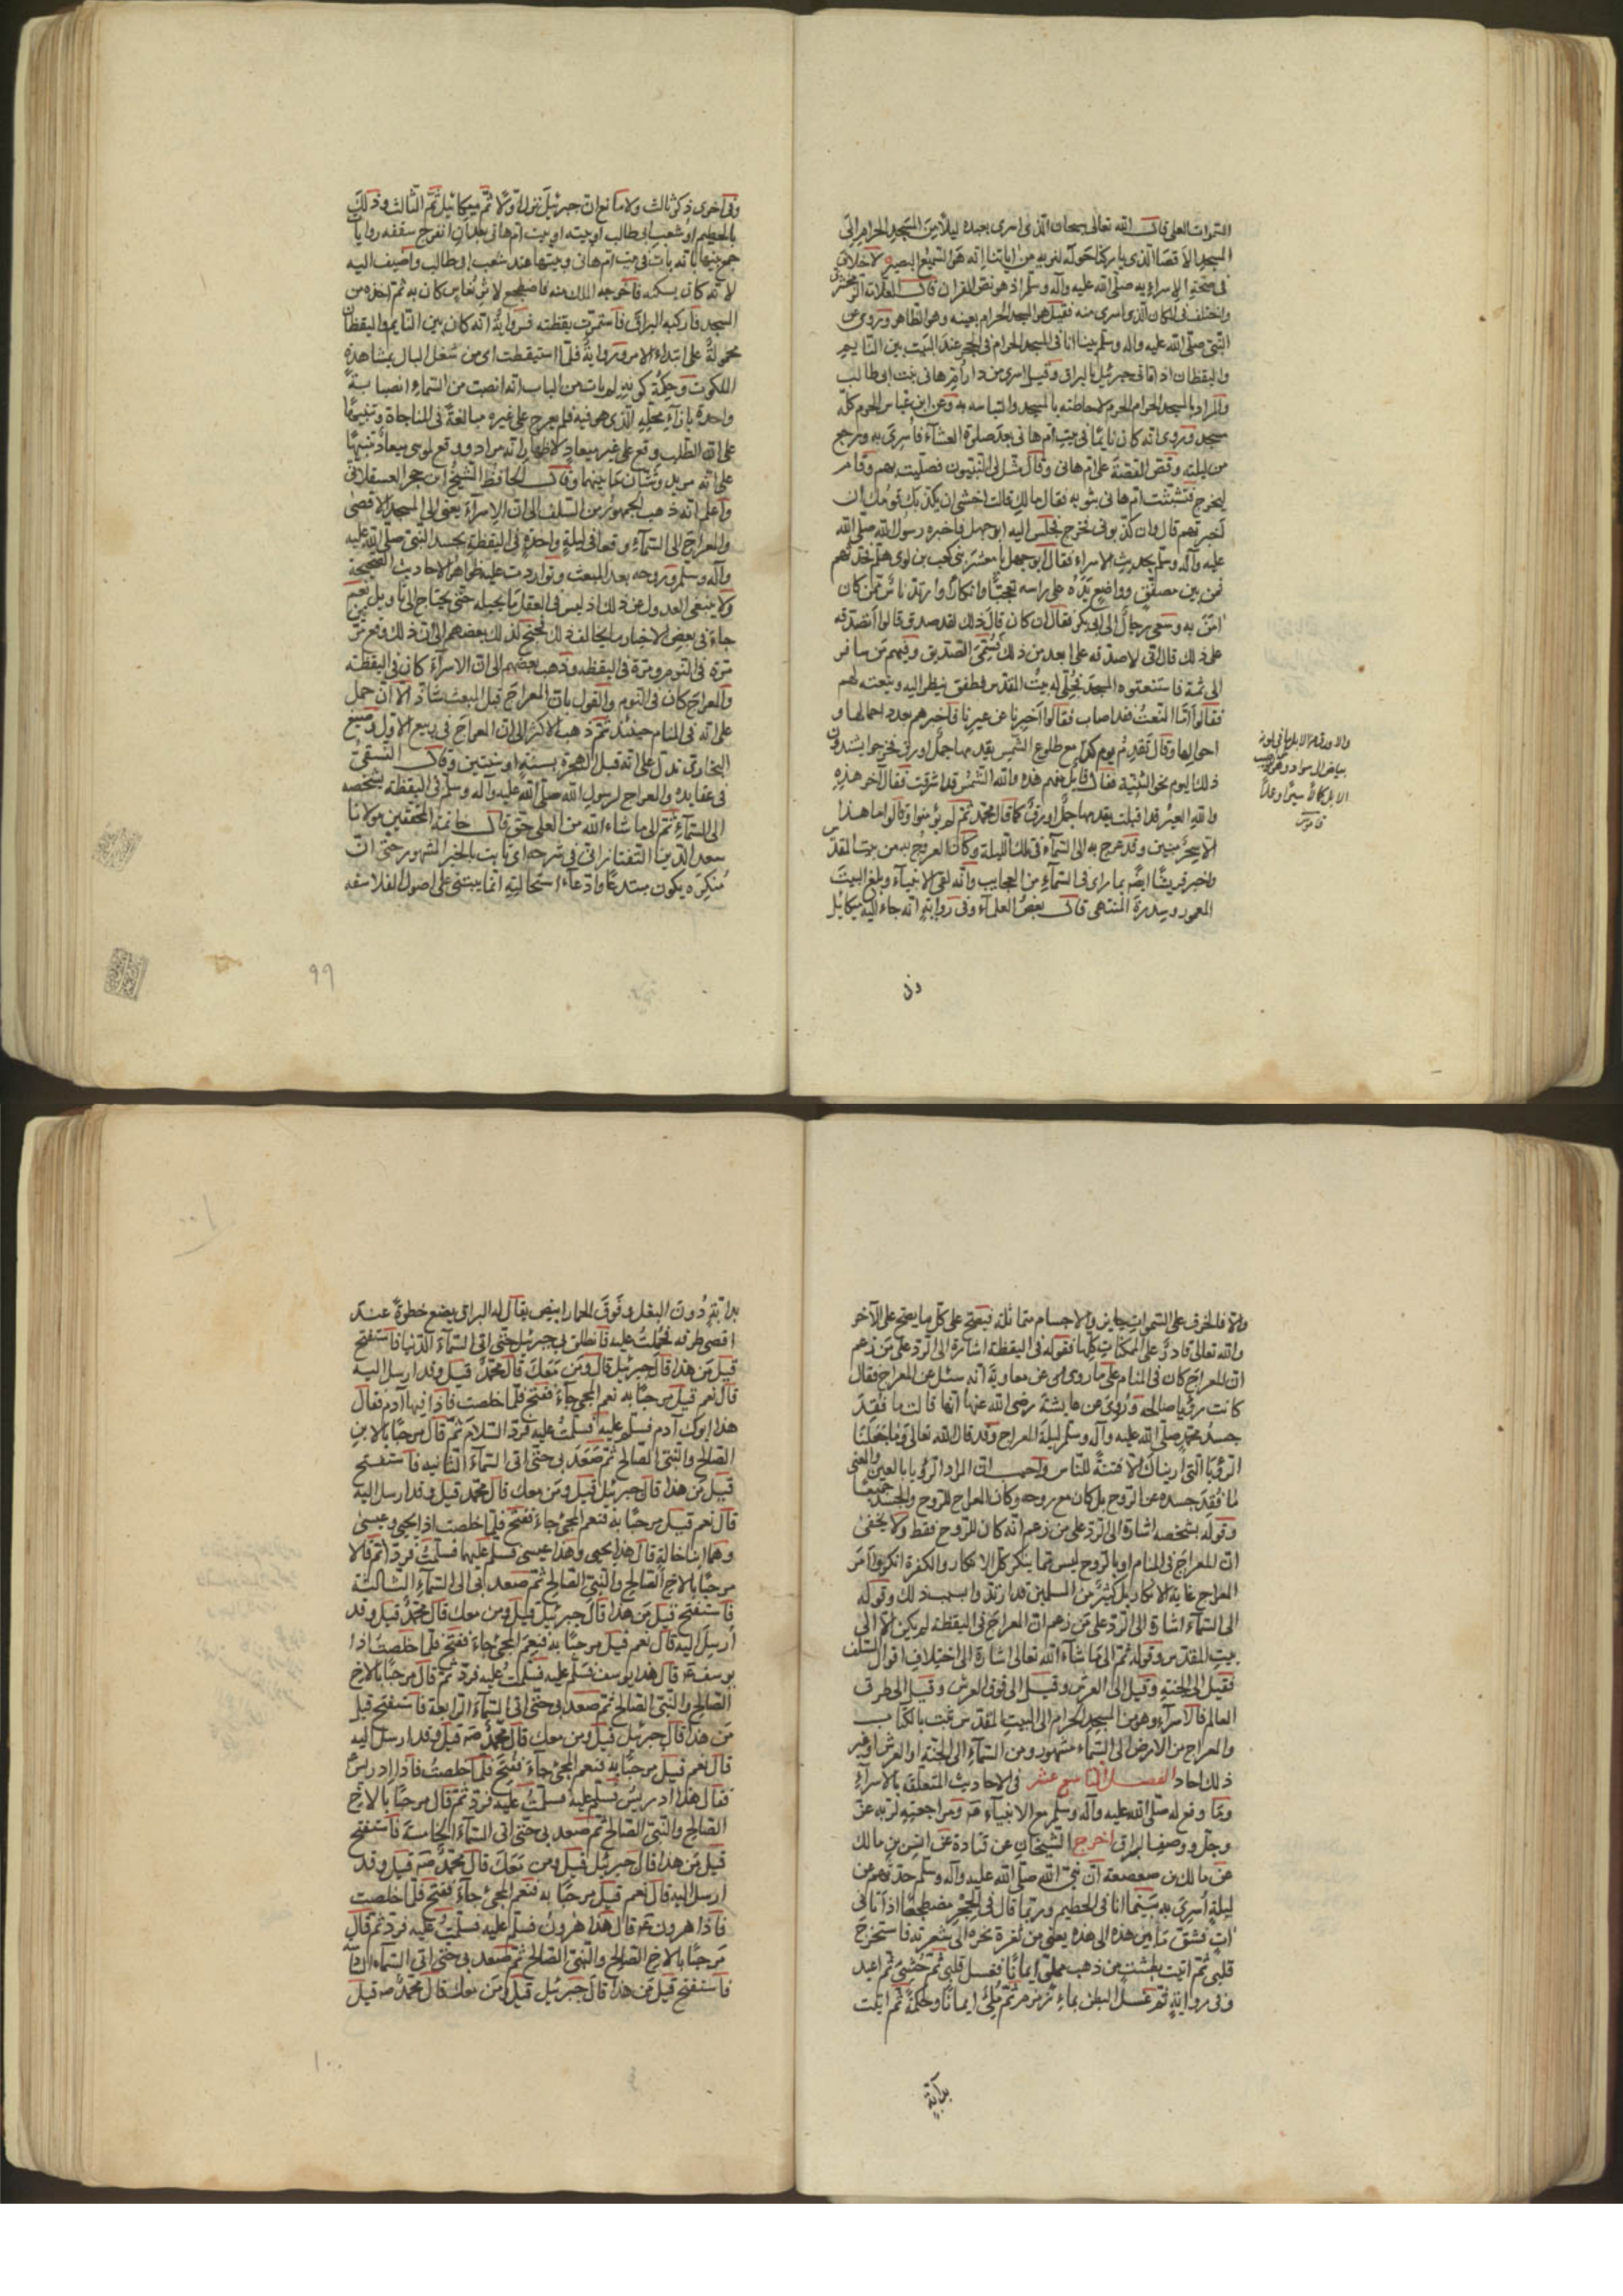 السموات العلى قال الله تعالى سبحان الذى اسرى بعبده ليلاً من المسجد الحرام الى
المسجد الاقصا الذى باركنا حوله لنريه من اياتنا انه هو السميع البصير لاخلاف
فى صحة الاسراء به صلى الله عليه وآله وسلم اذ هو نص القران قال العلامة الزمخشرى
واختلف فى المكان الذى اسرى منه فقيل هو المسجد الحرام بعينه وهو الظاهر وروى عن
النبى صلى الله عليه وآله وسلم بينا انا فى المسجد الحرام فى الحجر عند البيت بين النايم
واليقظان اذ اتانى جبرئيل بالبراق وقيل اسرى من دار ام هانى بنت ابى طالب
والمراد بالمسجد الحرام الحرم لاحاطته بالمسجد والتباسه به وعن ابن عباس الحرم كله
مسجد وروى انه كان نايما فى بيت ام هانى بعد صلوة العشآء فاسرى به ورجع
من ليلته وقص القصة على ام هانى وقال مثل لى النبيون فصليت بهم وقام
ليخرج فتشبثت ام هانى بثوبه فقال مالك قالت اخشى ان يكذبك قومك ان
اخبرتهم قال وان كذبونى فخرج فجلس اليه ابو جهل فاخبره رسول الله صلى الله
عليه وآله وسلم بحديث الاسراء فقال ابو جهل يا معشر بنى كعب بن لوى هلم فحدثهم
فمن بين مصفق وواضع يده على راسه تعجبا وانكارا وارتد ناس ممن كان
امن به وسعى رجال الى ابى بكر فقال ان كان قال ذلك لقد صدق قالوا اتصدقه
على ذلك قال انى لاصدقه على ابعد من ذلك فسمى الصديق وفيهم من سافر
الى ثمة فاستنعتوه المسجد فجلى له بيت المقدس فطفق ينظر اليه وينعته لهم
فقالوا اما النعت فقد اصاب فقالوا اخبرنا عن عيرنا فاخبرهم بعدد اجمالها و
احوالها وقال تقدم يوم كذا مع طلوع الشمس يقدمها جمل اورق فخرجوا يشتدون
ذلك اليوم نحو الثنية فقال قايل منهم هذه والله الشمس قد اشرقت فقال آخر هذه
والله العير قد اقبلت يقدمها جمل اورق كما قال محمد ثم لم يؤمنوا وقالوا ما هذا
الا سحر مبين وقد عرج به الى السمآء فى تلك الليلة وكان العروج به من بيت المقدس
واخبر قريشا ايضا بما راى فى السمآء من العجايب وانه لقى الانبيآء وبلغ البيت
المعمور وسدرة المنتهى قال بعض العلمآء وفى رواية انه جاء اليه ميكائيل
والاورق من الابل ما فى لونه
بياض الى سواد وهو اطيب
الابل لحما لا سيرا وعملا
قاموس
وفى اخرى ذكر ثالث ولا مانع ان جبرئيل نزل اولا ثم ميكائيل ثم الثالث وذلك
بالحطيم او شعب ابى طالب او بيته او بيت ام هانى بعد ان انفرج سقفه روايات
جمع بينها بانه بات فى بيت ام هانى وبيتها عند شعب ابى طالب واضيف اليه
لانه كان يسكنه فاخرجه الملك منه فاضطجع لاثر نعاس كان به ثم اخذه من
المسجد فاركبه البراق فاستمرت يقظته فرواية انه كان بين النايم واليقظان
محمولة على ابتداء الامر ورواية فلما استيقظت اى من شغل البال بمشاهدة
الملكوت وحكمة كونه لم يات من الباب انه انصب من السماء انصبابة
واحدة بازاء محله الذى هو فيه فلم يعرج على غيره مبالغة فى المناجاة وتنبيها
على ان الطلب وقع على غير ميعاد لاظهار انه مراد ووقع لموسى بميعاد تنبيها
على انه مريد وشتان ما بينهما وقال الحافظ الشيخ ابن حجر العسقلانى
واعلم انه ذهب الجمهور من السلف الى ان الاسرآء يعنى الى المسجد الاقصى
والمعراج الى السمآء وقعا فى ليلة واحدة فى اليقظة بجسد النبى صلى الله عليه
وآله وسلم وروحه بعد المبعث وتواردت عليه ظواهر الاحاديث الصحيحة
ولا ينبغى العدول عن ذلك اذ ليس فى العقل ما يحيله حتى يحتاج الى تاويل نعم
جاء فى بعض الاخبار ما يخالف ذلك فجنح لذلك بعضهم الى ان ذلك وقع مرتين
مرة فى النوم ومرة فى اليقظة وذهب بعضهم الى ان الاسرآء كان فى اليقظة
والمعراج كان فى النوم والقول بان المعراج قبل المبعث شاذ الا ان حمل
على انه فى المنام حينئذ ثم ذهب الاكثر الى ان المعراج فى ربيع الاول وصنيع
البخارى تدل على انه قبل الهجرة بسنة او سنتين وقال النسفى
فى عقايده والمعراج لرسول الله صلى الله عليه وآله وسلم فى اليقظة بشخصه
الى السمآء ثم الى ما شاء الله من العلى حق قال خاتمة المحققين مولانا
سعد الدين التفتازانى فى شرحه اى ثابت بالخبر المشهور حتى ان
منكره يكون مبتدعا وادعآء استحالته انما يبتنى على اصول الفلاسفه
٩٩
والا فالخرق على السموات جايز والاجسام متماثلة فيصح على كل ما يصح على الآخر
والله تعالى قادر على الممكنات كلها فقوله فى اليقظة اشارة الى الرد على من زعم
ان المعراج كان فى المنام على ما روى عن معاوية انه سئل عن المعراج فقال
كانت رؤيا صالحه وروى عن عايشة رضى الله عنها انها قالت ما فقد
جسد محمد صلى الله عليه وآله وسلم ليلة المعراج وقد قال الله تعالى وما جعلنا
الرؤيا التى اريناك الا فتنة للناس واجيب ان المراد الرؤيا بالعين والمعنى
ما فقد جسده عن الروح بل كان مع روحه وكان المعراج للروح والجسد جميعا
وقوله بشخصه اشارة الى الرد على من زعم انه كان للروح فقط ولا يخفى
ان المعراج فى المنام او بالروح ليس مما ينكر كل الانكار والكفرة انكروا امر
المعراج غاية الانكار بل كثير من المسلمين قد ارتدوا بسبب ذلك وقوله
الى السمآء اشارة الى الرد على من زعم ان المعراج فى اليقظة لم يكن الا الى
بيت المقدس وقوله ثم الى ما شاء الله تعالى اشارة الى اختلاف اقوال السلف
فقيل الى الجنة وقيل الى العرش وقيل الى فوق العرش وقيل الى طرف
العالم فالاسرآء وهو من المسجد الحرام الى البيت المقدس ثبت بالكتاب
والمعراج من الارض الى السماء مشهور ومن السماء الى الجنة او العرش او غير
ذلك احاد الفصل التاسع عشر فى الاحاديث المتعلقة بالاسرآء
وما وقع له صلى الله عليه وآله وسلم مع الانبيآء ومراجعته لربه عز
وجل ووصف البراق اخرج الشيخان عن قتادة عن انس بن مالك
عن مالك بن صعصعة ان نبى الله صلى الله عليه وآله وسلم حدثهم عن
ليلة اسرى به بينما انا فى الحطيم وربما قال فى الحجر مضطجعا اذ اتانى
ات فشق ما بين هذه الى هذه يعنى من ثغرة نحره الى شعرته فاستخرج
قلبى ثم اتيت بطشت من ذهب مملو ايمانا فغسل قلبى ثم حشى ثم اعيد
وفى رواية ثم غسل البطن بماء زمزم ثم ملئ ايمانا وحكمة ثم اتيت
بدابة
١٠٠
بدابة دون البغل وفوق الحمار ابيض يقال له البراق يضع خطوة عند
اقصى طرفه فحملت عليه فانطلق بى جبرئيل حتى اتى السمآء الدنيا فاستفتح
قيل من هذا قال جبرئيل قال ومن معك قال محمد قيل وقد ارسل اليه
قال نعم قيل مرحبا به نعم المجئ جآء ففتح فلما خلصت فاذا فيها آدم فقال
هذا ابوك آدم فسلم عليه فسلمت عليه فرد السلام ثم قال مرحبا بالابن
الصالح والنبى الصالح ثم صعد بى حتى اتى السمآء الثانيه فاستفتح
قيل من هذا قال جبرئيل قيل ومن معك قال محمد قيل وقد ارسل اليه
قال نعم قيل مرحبا به فنعم المجئ جاء ففتح فلما خلصت اذا يحيى وعيسى
وهما ابنا خالة قال هذا يحيى وهذا عيسى فسلم عليهما فسلمت فردا ثم قالا
مرحبا بالاخ الصالح والنبى الصالح ثم صعد بى الى السمآء الثالثة
فاستفتح قيل من هذا قال جبرئيل قيل ومن معك قال محمد قيل وقد
ارسل اليه قال نعم قيل مرحبا به فنعم المجئ جاء ففتح فلما خلصت اذا
يوسف قال هذا يوسف فسلم عليه فسلمت عليه فرد ثم قال مرحبا بالاخ
الصالح والنبى الصالح ثم صعد بى حتى اتى السمآء الرابعة فاستفتح قيل
من هذا قال جبرئيل قيل ومن معك قال محمد قيل وقد ارسل اليه
قال نعم قيل مرحبا به فنعم المجئ جآء ففتح فلما خلصت فاذا ادريس
فقال هذا ادريس فسلم عليه فسلمت عليه فرد ثم قال مرحبا بالاخ
الصالح والنبى الصالح ثم صعد بى حتى اتى السمآء الخامسة فاستفتح
قيل من هذا قال جبرئيل قيل ومن معك قال محمد قيل وقد
ارسل اليه قال نعم قيل مرحبا به فنعم المجئ جآء ففتح فلما خلصت
فاذا هرون قال هذا هرون فسلم عليه فسلمت عليه فرد ثم قال
مرحبا بالاخ الصالح والنبى الصالح ثم صعد بى حتى اتى السمآء
فاستفتح قيل من هذا قال جبرئيل قيل ومن معك قال محمد قيل
١٠٠